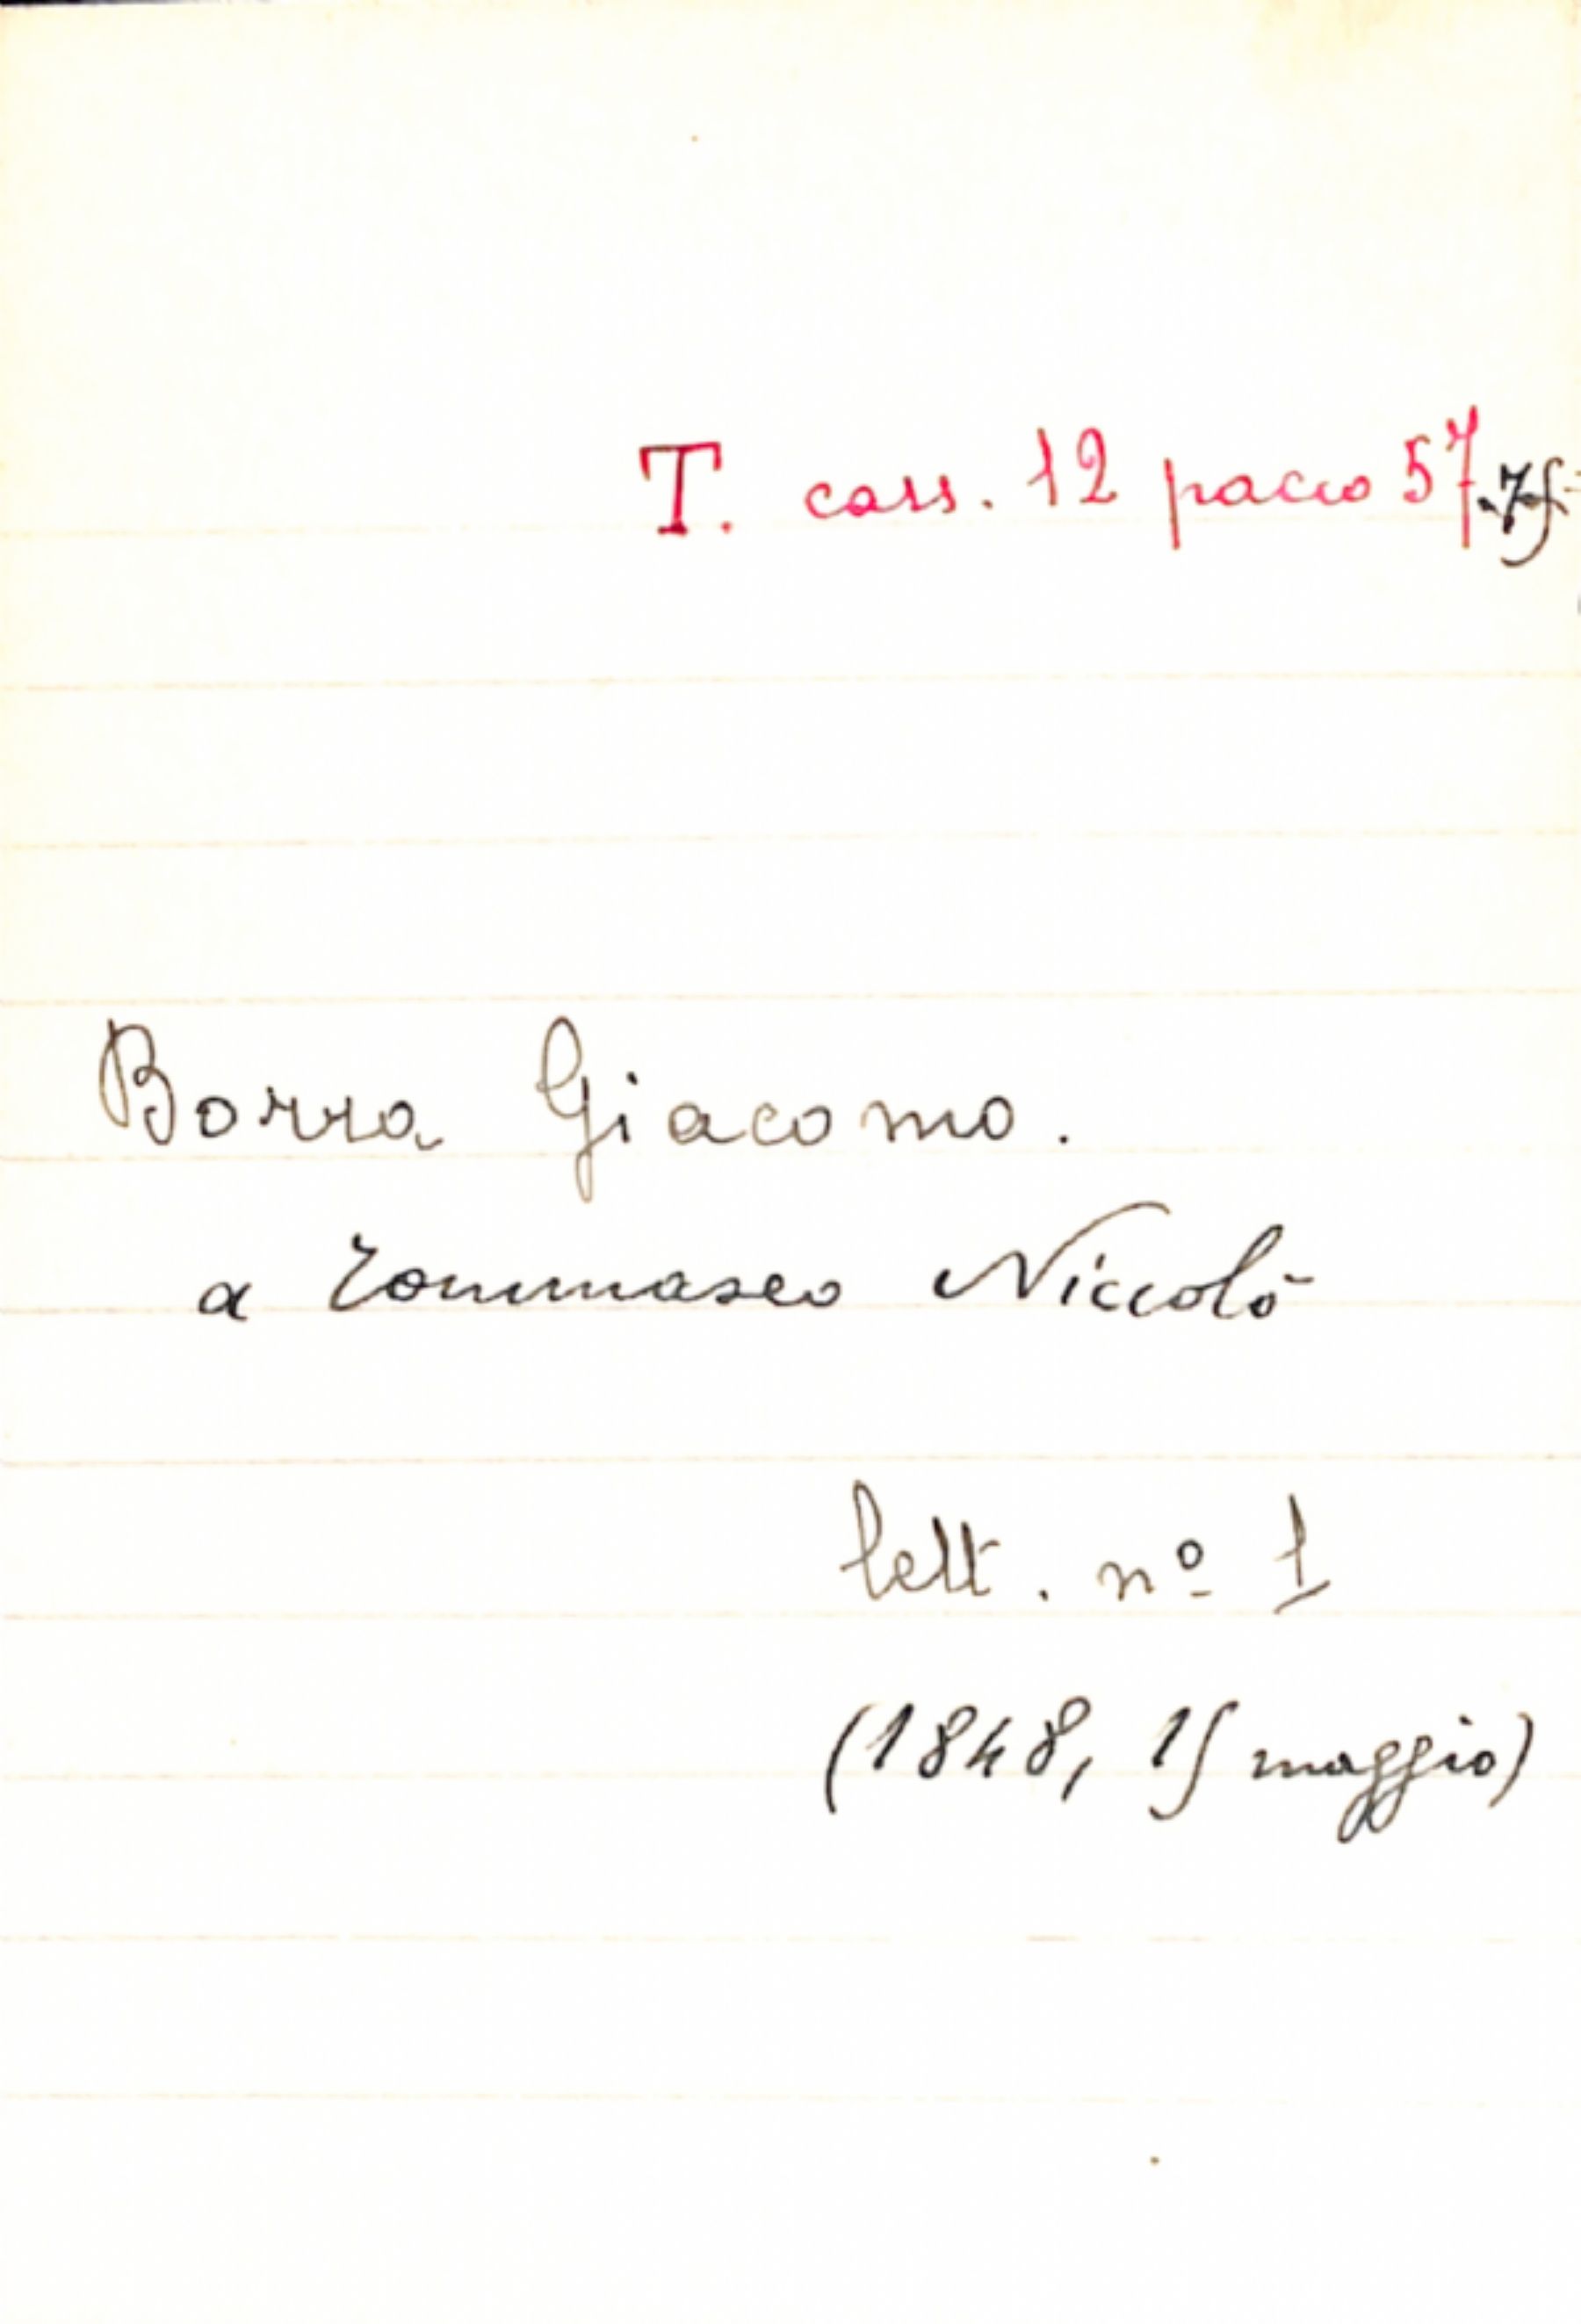 T. cass. 12 pacco 57.
Borra Giacomo.
a Tommaseo Niccolò
lett. nº 1
(1848, 15 maggio)